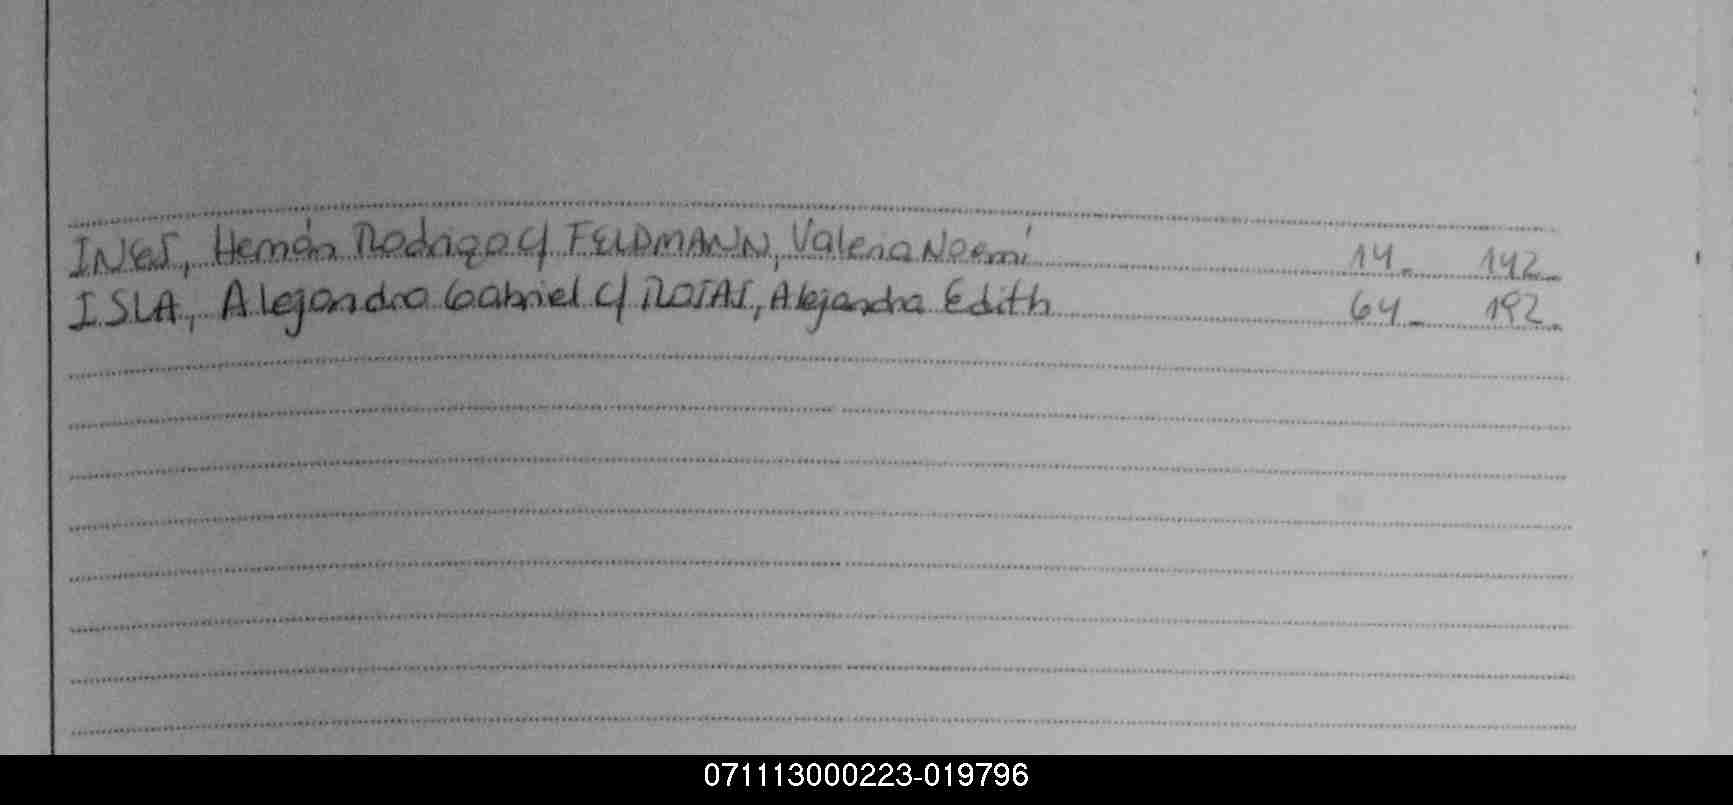 INES, Hernán Rodrigo c/ FELDMANN, Valeria Noemí 14. 142.
ISLA, Alejandro Gabriel c/ ROJAS, Alejandra Edith 64. 192.
071113000223-019796